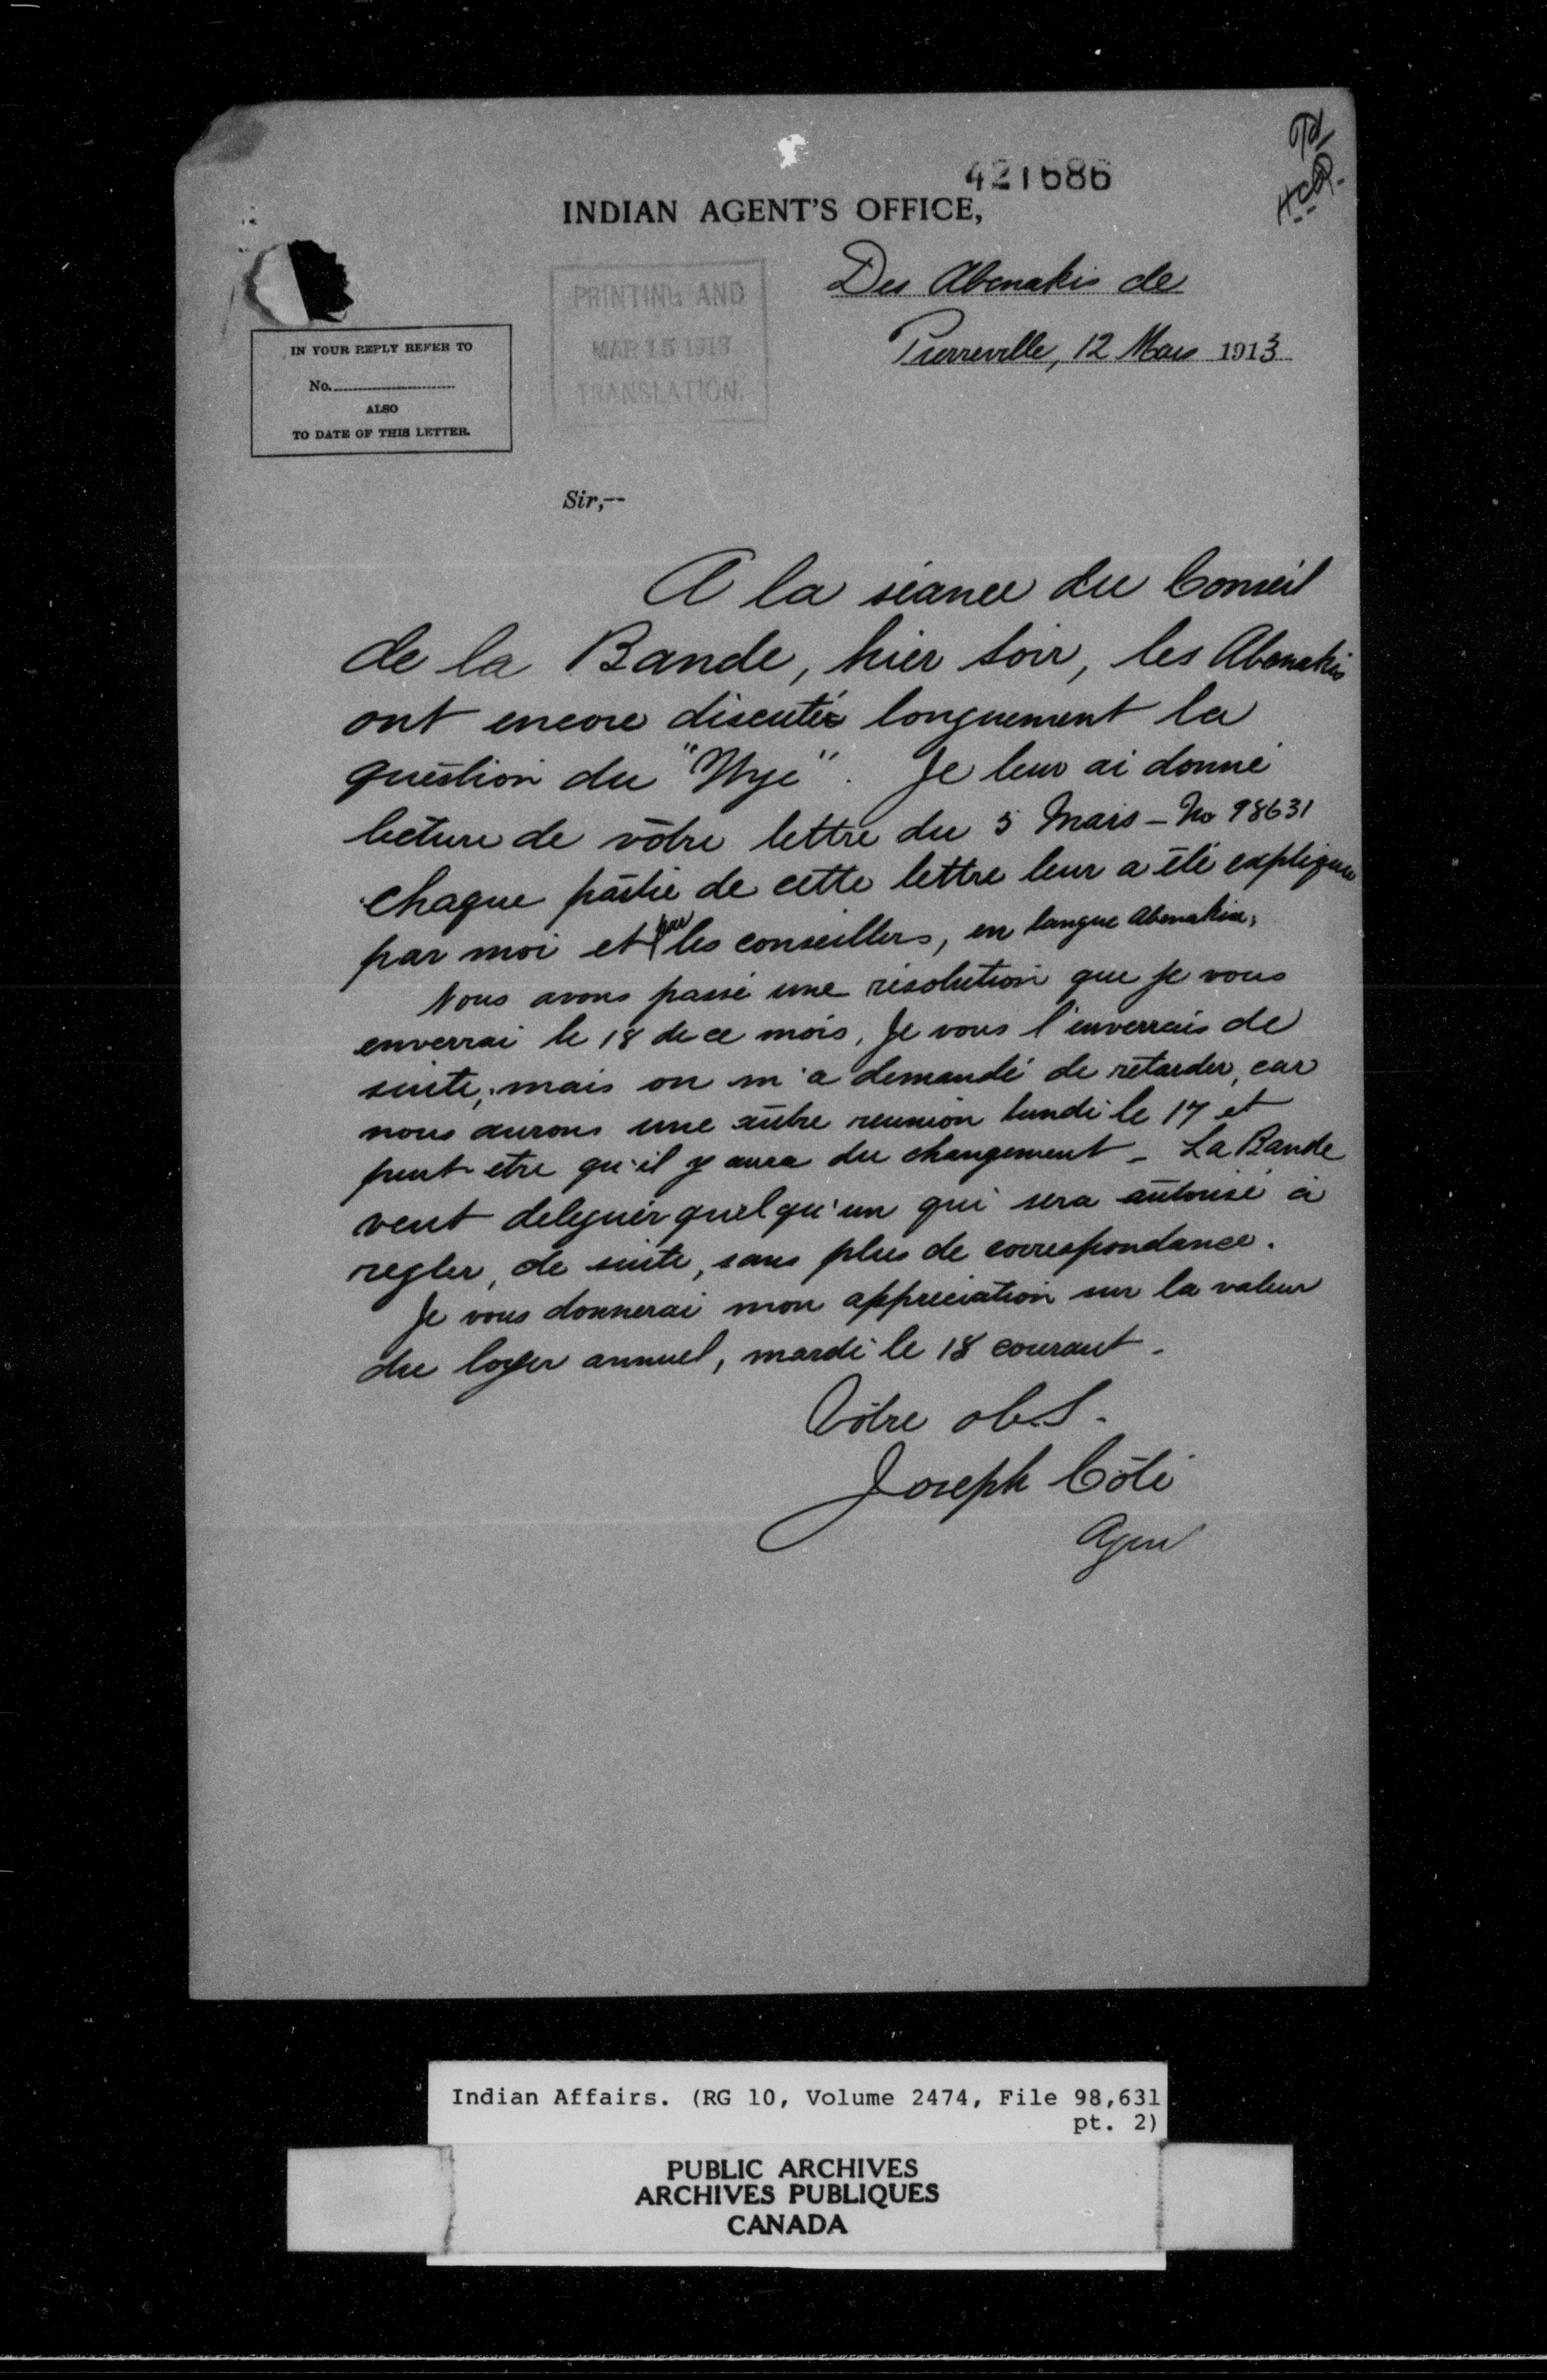 421686
INDIAN AGENT'S OFFICE,
Des Abenakis de
Pierreville, 12 Mars 1913
PRINTING AND
MAR 15 1913
TRANSLATION.
IN YOUR REPLY REFER TO
No.
ALSO
TO DATE OF THIS LETTER.
Sir,--
A la séance du Conseil
de la Bande, hier soir, les Abenakis
ont encore discutés longuement la
question du "Nye". Je leur ai donné
lecture de vôtre lettre du 5 Mars - No 98631
chaque partie de cette lettre leur a été expliquée
par moi et par les conseillers, en langue Abenakise,
Nous avons passé une résolution que je vous
enverrai le 18 de ce mois. Je vous l'enverrais de
suite, mais on m'a demandé de retarder, car
nous aurons une autre reunion lundi le 17 et
peut etre qu'il y aura du changement - La Bande
veut deleguér quelqu'un qui sera autorisé à
regler, de suite, sans plus de correspondance.
Je vous donnerai mon appreciation sur la valeur
du loyer annuel, mardi le 18 courant.
Vôtre ob. S.
Joseph Côté
Agent
Indian Affairs. (RG 10, Volume 2474, File 98,631
pt. 2)
PUBLIC ARCHIVES
ARCHIVES PUBLIQUES
CANADA